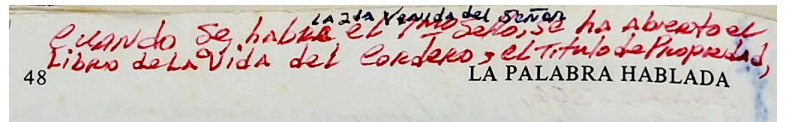 LA 2da Venida del Señor
Cuando se habla el 7mo Sello, se ha abierto el
Libro de La Vida del Cordero, el Título de Propiedad,
48 LA PALABRA HABLADA